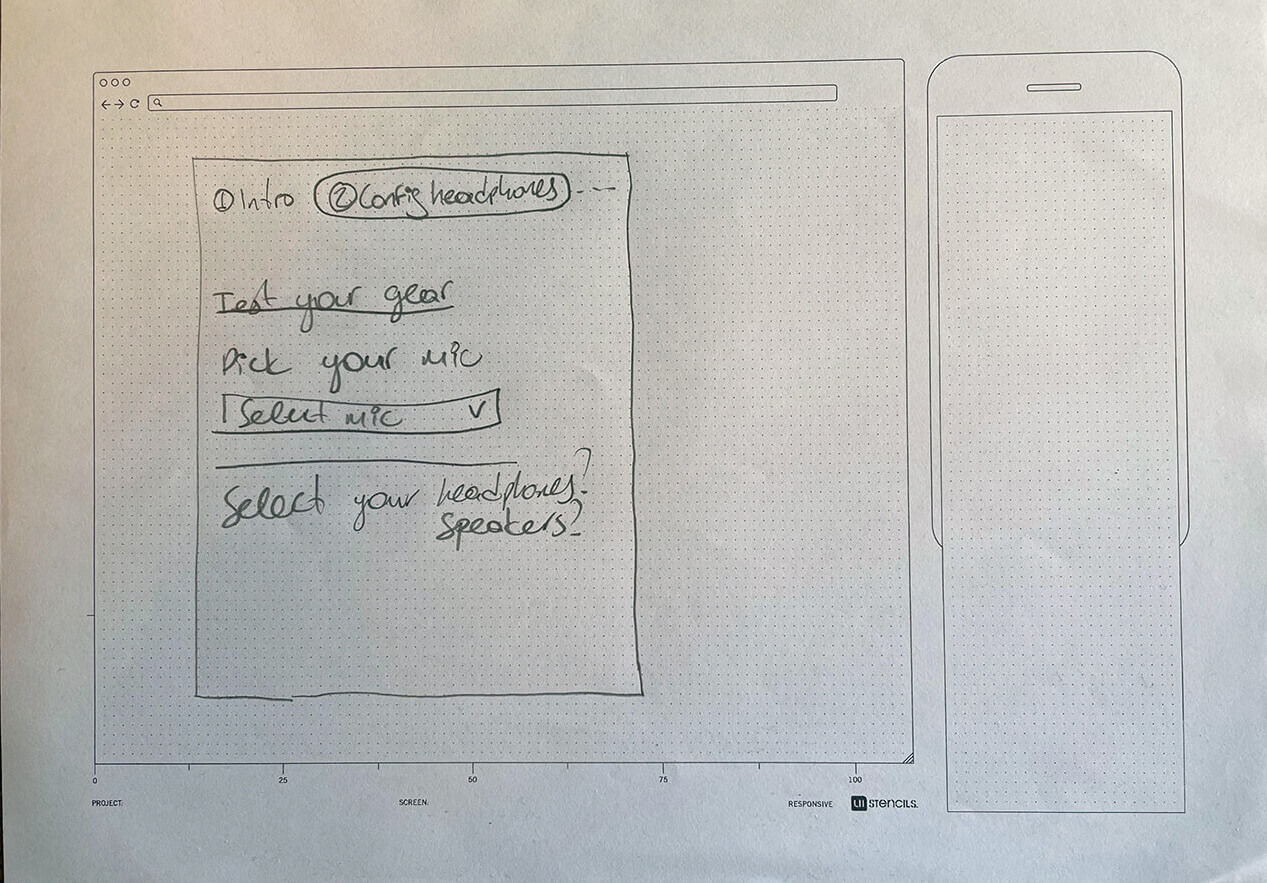 ① Intro ② Config headphones ---
Test your gear
Pick your mic
Select mic v
Select your headphones?
Speakers?
0 25 50 75 100
PROJECT: SCREEN: RESPONSIVE UI STENCILS.